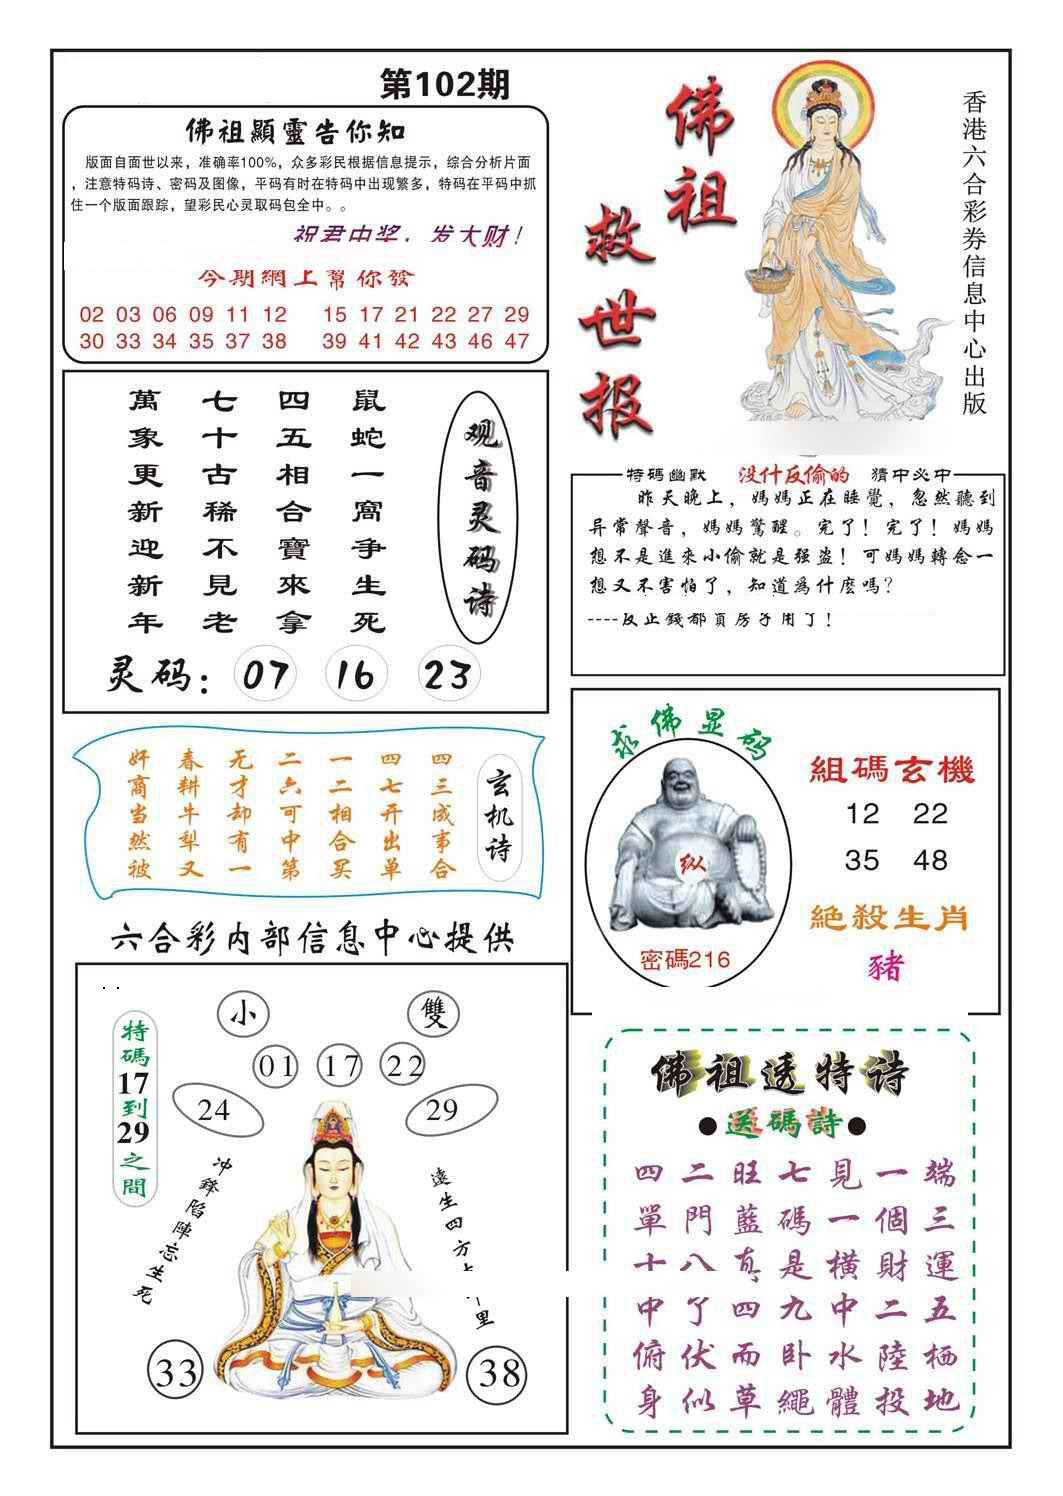 第102期
佛祖顯靈告你知
版面自面世以来，准确率100%，众多彩民根据信息提示，综合分析片面
，注意特码诗、密码及图像，平码有时在特码中出现繁多，特码在平码中抓
住一个版面跟踪，望彩民心灵取码包全中。。
祝君中奖，发大财！
今期網上幫你發
02 03 06 09 11 12 15 17 21 22 27 29
30 33 34 35 37 38 39 41 42 43 46 47
佛祖救世报
香港六合彩券信息中心出版
观音灵码诗
鼠蛇一窩争生死
四五相合寶來拿
七十古稀不見老
萬象更新迎新年
灵码：07 16 23
特碼幽默 没什反偷的 猜中必中
昨天晚上，媽媽正在睡覺，忽然聽到
异常聲音，媽媽驚醒。完了！完了！媽媽
想不是進來小偷就是强盗！可媽媽轉念一
想又不害怕了，知道爲什麼嗎？
----反正錢都買房子用了！
玄机诗
四三成事合
四七开出单
一二相合买
二六可中第
无才却有一
春耕牛犁又
奸商当然被
求佛显码
纵
密碼216
組碼玄機
12 22
35 48
絕殺生肖
豬
六合彩内部信息中心提供
特碼17到29之間
小 雙
01 17 22
24 29
冲鋒陷陣忘生死
遠生四方 里
33 38
佛祖透特诗
●送碼詩●
四二旺七見一端
單門藍碼一個三
十八真是横財運
中了四九中二五
俯伏而卧水陸栖
身似草繩體投地